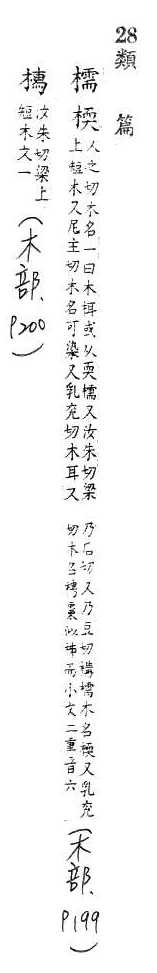 28 類 篇
檽 㮕 人之切木名一曰木栮或从耎檽又汝朱切梁
上短木又尼主切木名可染又乳兖切木耳又
乃后切又乃豆切構檽木名㮕又乳兖
切木名棗似柿而小文二重音六
(木部、P199)
汝朱切梁上
短木文一
(木部、P200)